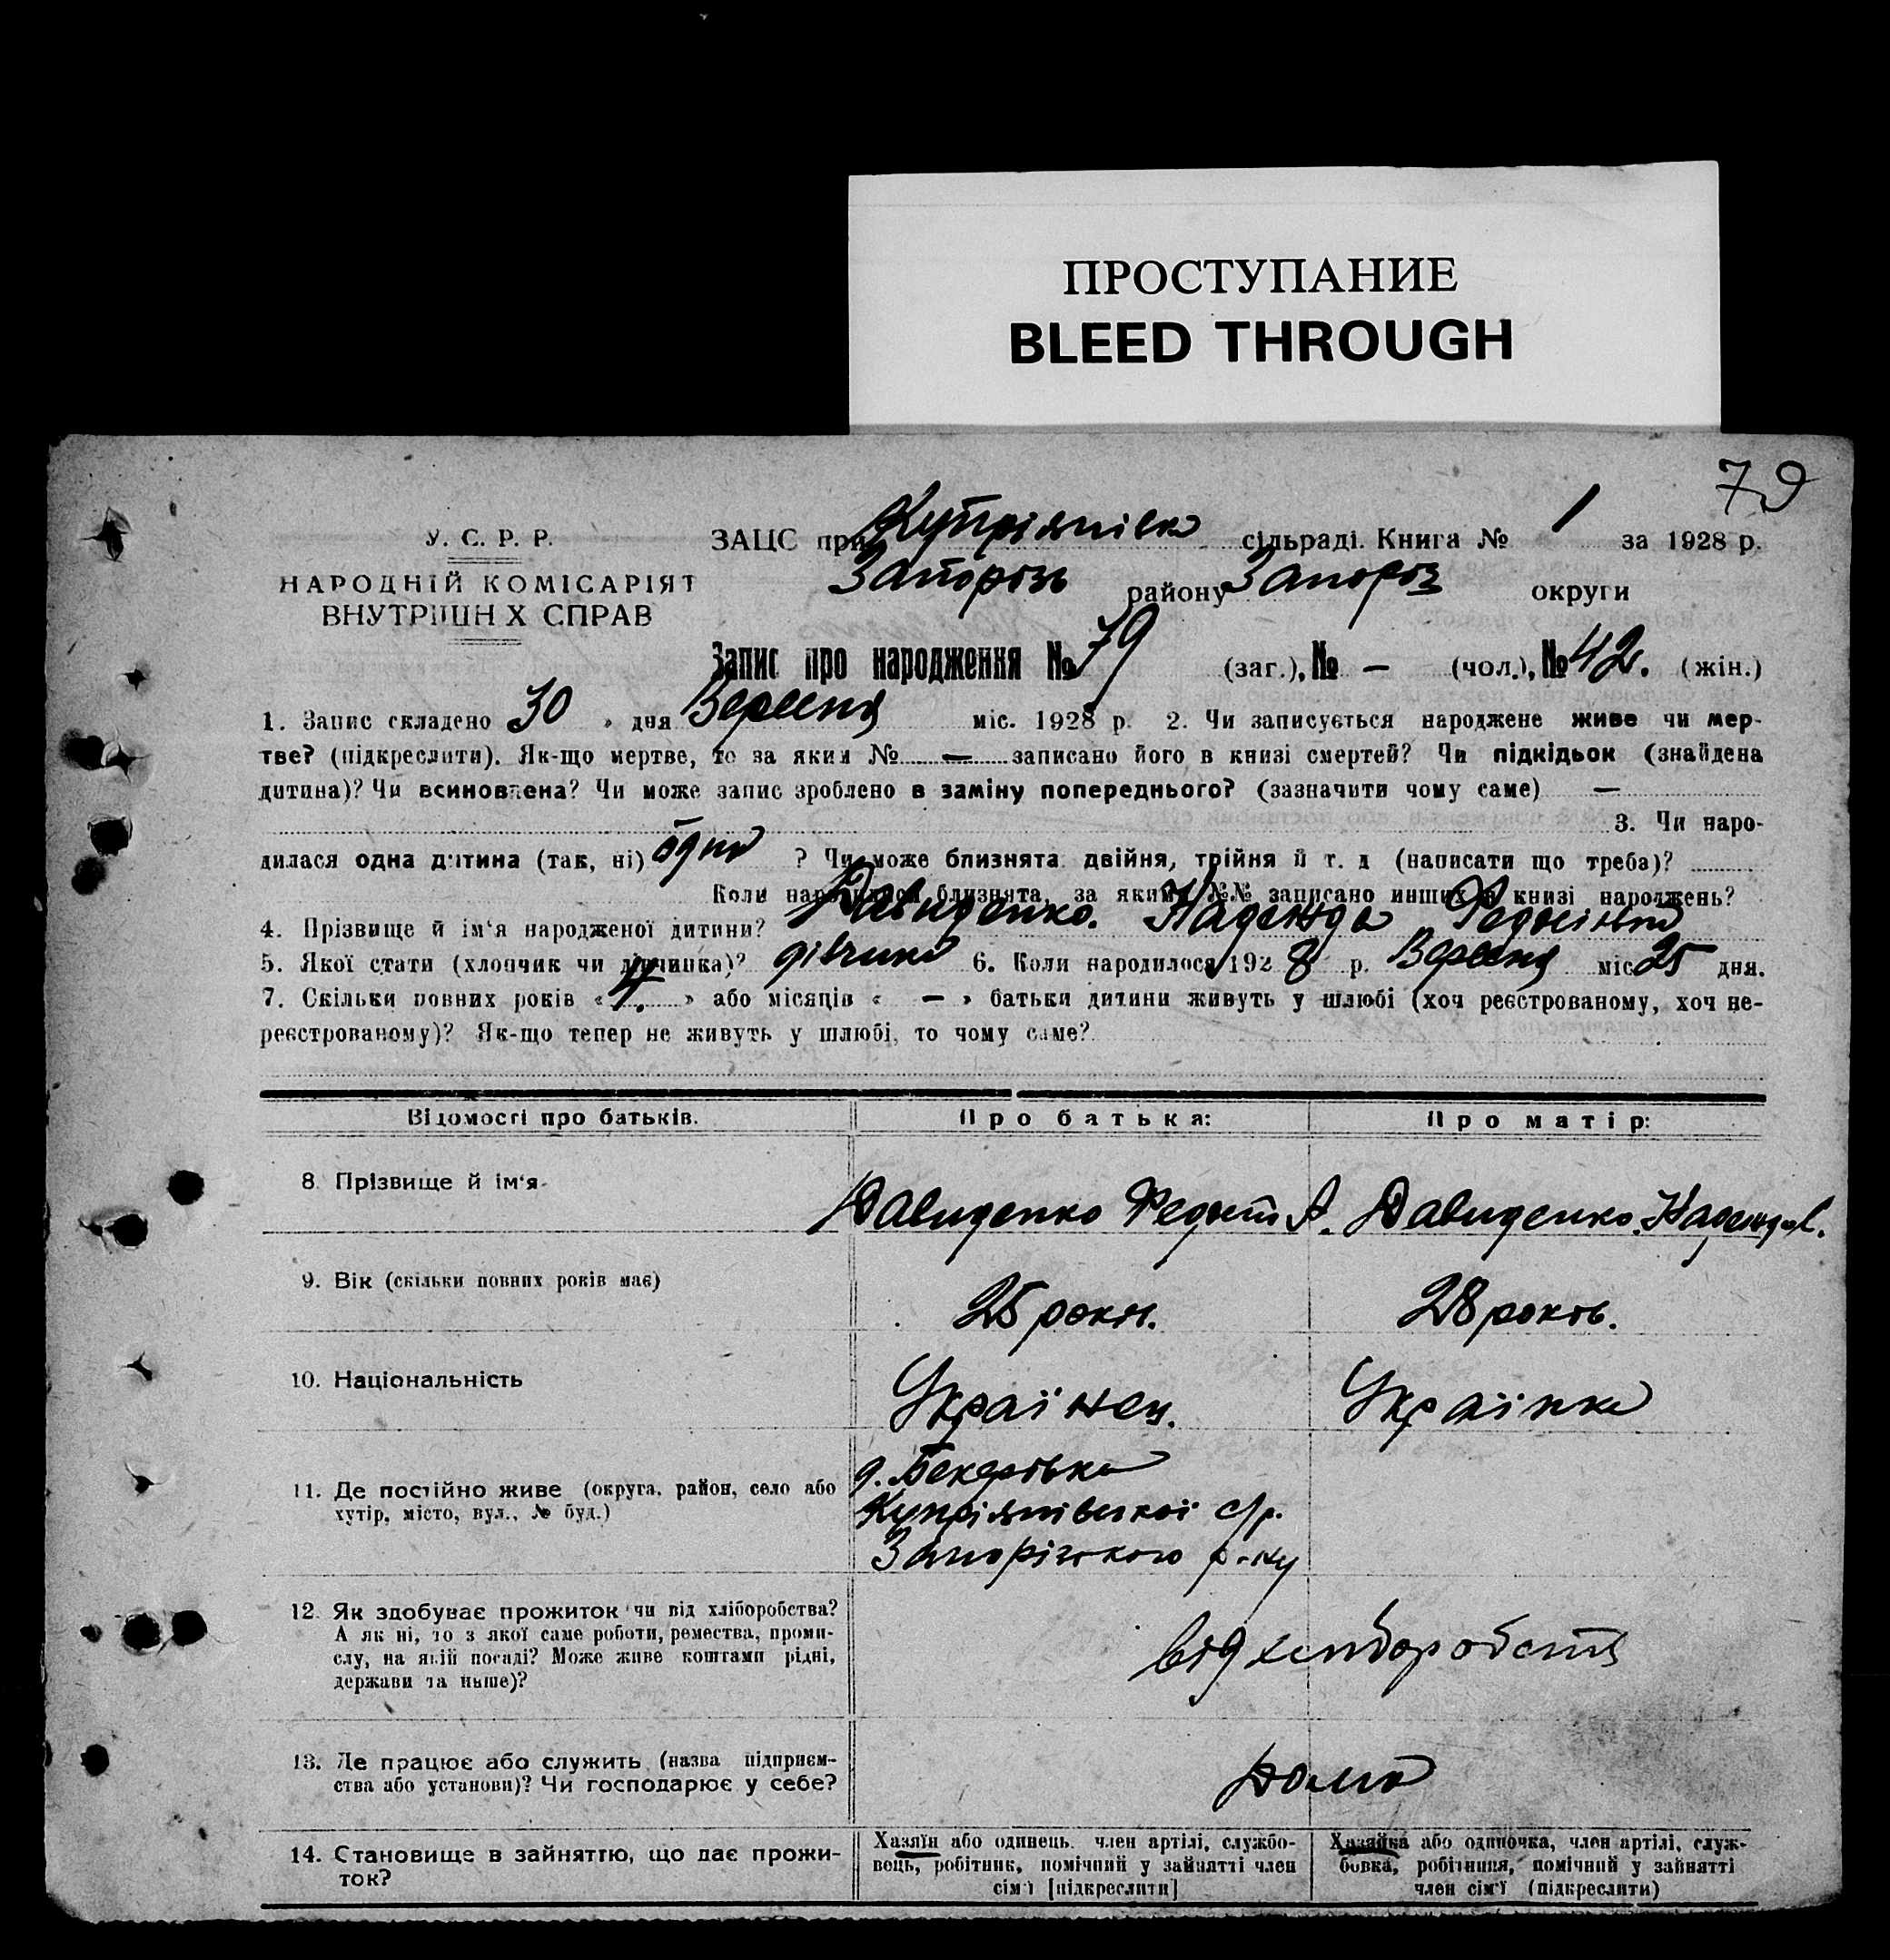 ПРОСТУПАНИЕ
BLEED THROUGH
79
У. С. Р. Р.
НАРОДНІЙ КОМІСАРІЯТ
ВНУТРІШН Х СПРАВ
ЗАЦС при Купріянівка сільраді. Книга № 1 за 1928 р.
Запорізь району Запоріз округи
Запис про народження № 79 (заг.), № — (чол.), № 42. (жін.)
1. Запис складено 30 » дня Вересня міс. 1928 р. 2. Чи записується народжене живе чи мер-
тве? (підкреслити). Як-що мертве, то за яким № — записано його в книзі смертей? Чи підкідьок (знайдена
дитина)? Чи всиновлена? Чи може запис зроблено в заміну попереднього? (зазначити чому саме) —
3. Чи наро-
дилася одна дитина (так, ні) одно ? Чи може близнята, двійня, трійня й т. д (написати що треба)?
Коли народилися близнята, за якими №№ записано инших в книзі народжень?
4. Прізвище й ім'я народженої дитини? Давиденко. Надежда
5. Якої стати (хлопчик чи дівчинка)? дівчина 6. Коли народилося 1928 р. Вересня міс 25 дня.
7. Скільки повних років « » або місяців « — » батьки дитини живуть у шлюбі (хоч реєстрованому, хоч не-
реєстрованому)? Як-що тепер не живуть у шлюбі, то чому саме?
Відомості про батьків.
Про батька:
Про матір:
8. Прізвище й ім'я
Давиденко Федот А.
Давиденко Надежда
9. Вік (скільки повних років має)
25 років.
28 років.
10. Національність
Українец.
Українка
11. Де постійно живе (округа, район, село або
хутір, місто, вул., № буд.)
Купріянівської с/р.
Запорізького р-ну
12. Як здобуває прожиток чи від хліборобства?
А як ні, то з якої саме роботи, ремества, проми-
слу, на якій посаді? Може живе коштами рідні,
держави та инше)?
від хліборобств
13. Де працює або служить (назва підприєм-
ства або установи)? Чи господарює у себе?
дома
14. Становище в зайняттю, що дає прожи-
ток?
Хазяїн або одинець, член артілі, службо-
вець, робітник, помічний у зайнятті член
сім'ї [підкреслити]
Хазяйка або одиночка, член артілі, служ-
бовка, робітниця, помічний у зайнятті
член сім'ї (підкреслити)